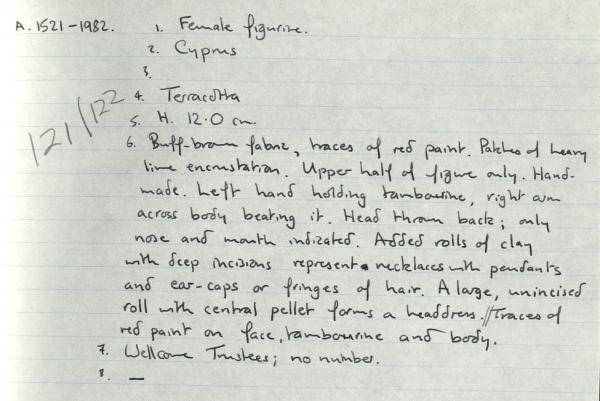 A. 1521-1982. 1. Female figurine.
2. Cyprus
3.
121/122
4. Terracotta
5. H. 12.0 cm.
6. Buff-brown fabric, traces of red paint. Patches of heavy
lime encrustation. Upper half of figure only. Hand-
made. Left hand holding tambourine, right arm
across body beating it. Head thrown back; only
nose and mouth indicated. Added rolls of clay
with deep incisions represent necklaces with pendants
and ear-caps or fringes of hair. A large, unincised
roll with central pellet forms a headdress.//Traces of
red paint on face, tambourine and body.
7. Wellcome Trustees; no number.
8. —